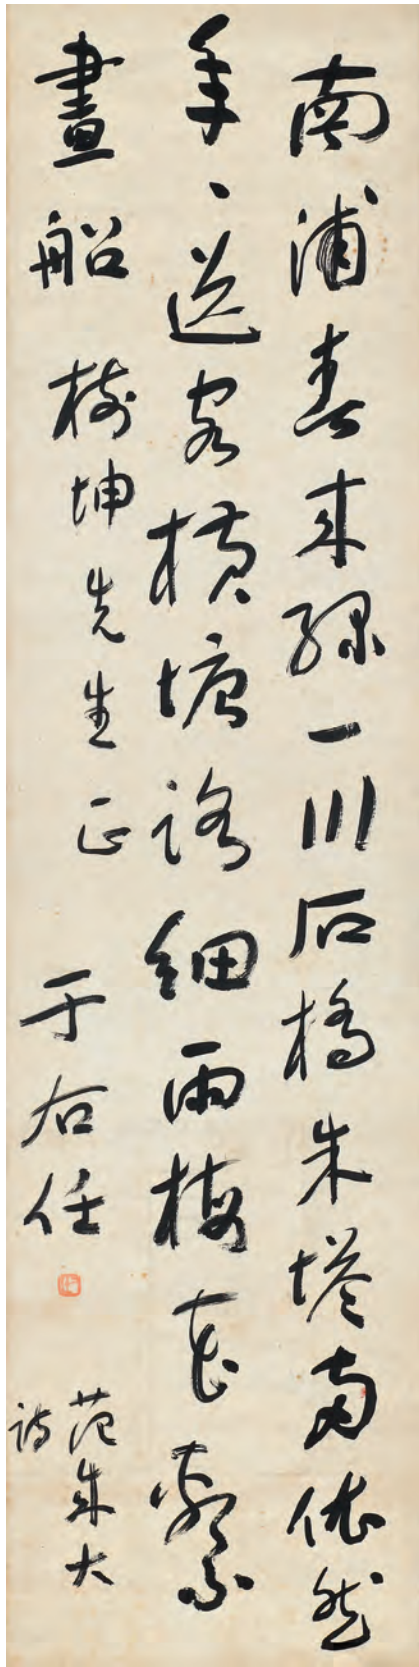 南浦春來綠一川石橋朱塔兩依然
年〻送客橫塘路細雨梅花繫
畫船 樹坤先生正 于右任
范成大
詩